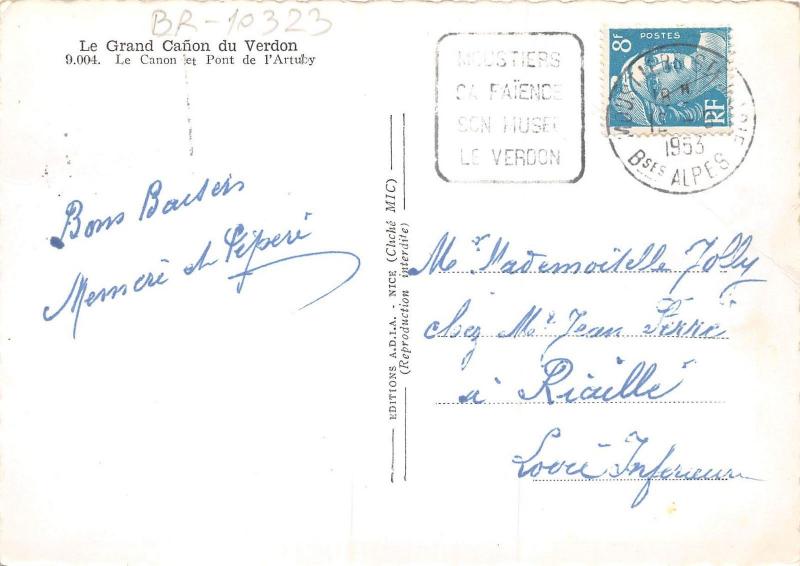 BR-10323
Le Grand Cañon du Verdon
9.004. Le Canon et Pont de l'Artuby
MOUSTIERS
SA FAÏENCE
SON MUSEE
LE VERDON
8F
POSTES
RF
1953
Bses ALPES
Bons Baisers
Memeré et Péperé
EDITIONS A.D.I.A. - NICE (Cliché MIC)
(Reproduction interdite)
Mr Mademoiselle Jolly
chez Mr Jean Pierre
à Riaillé
Loire Inferieure